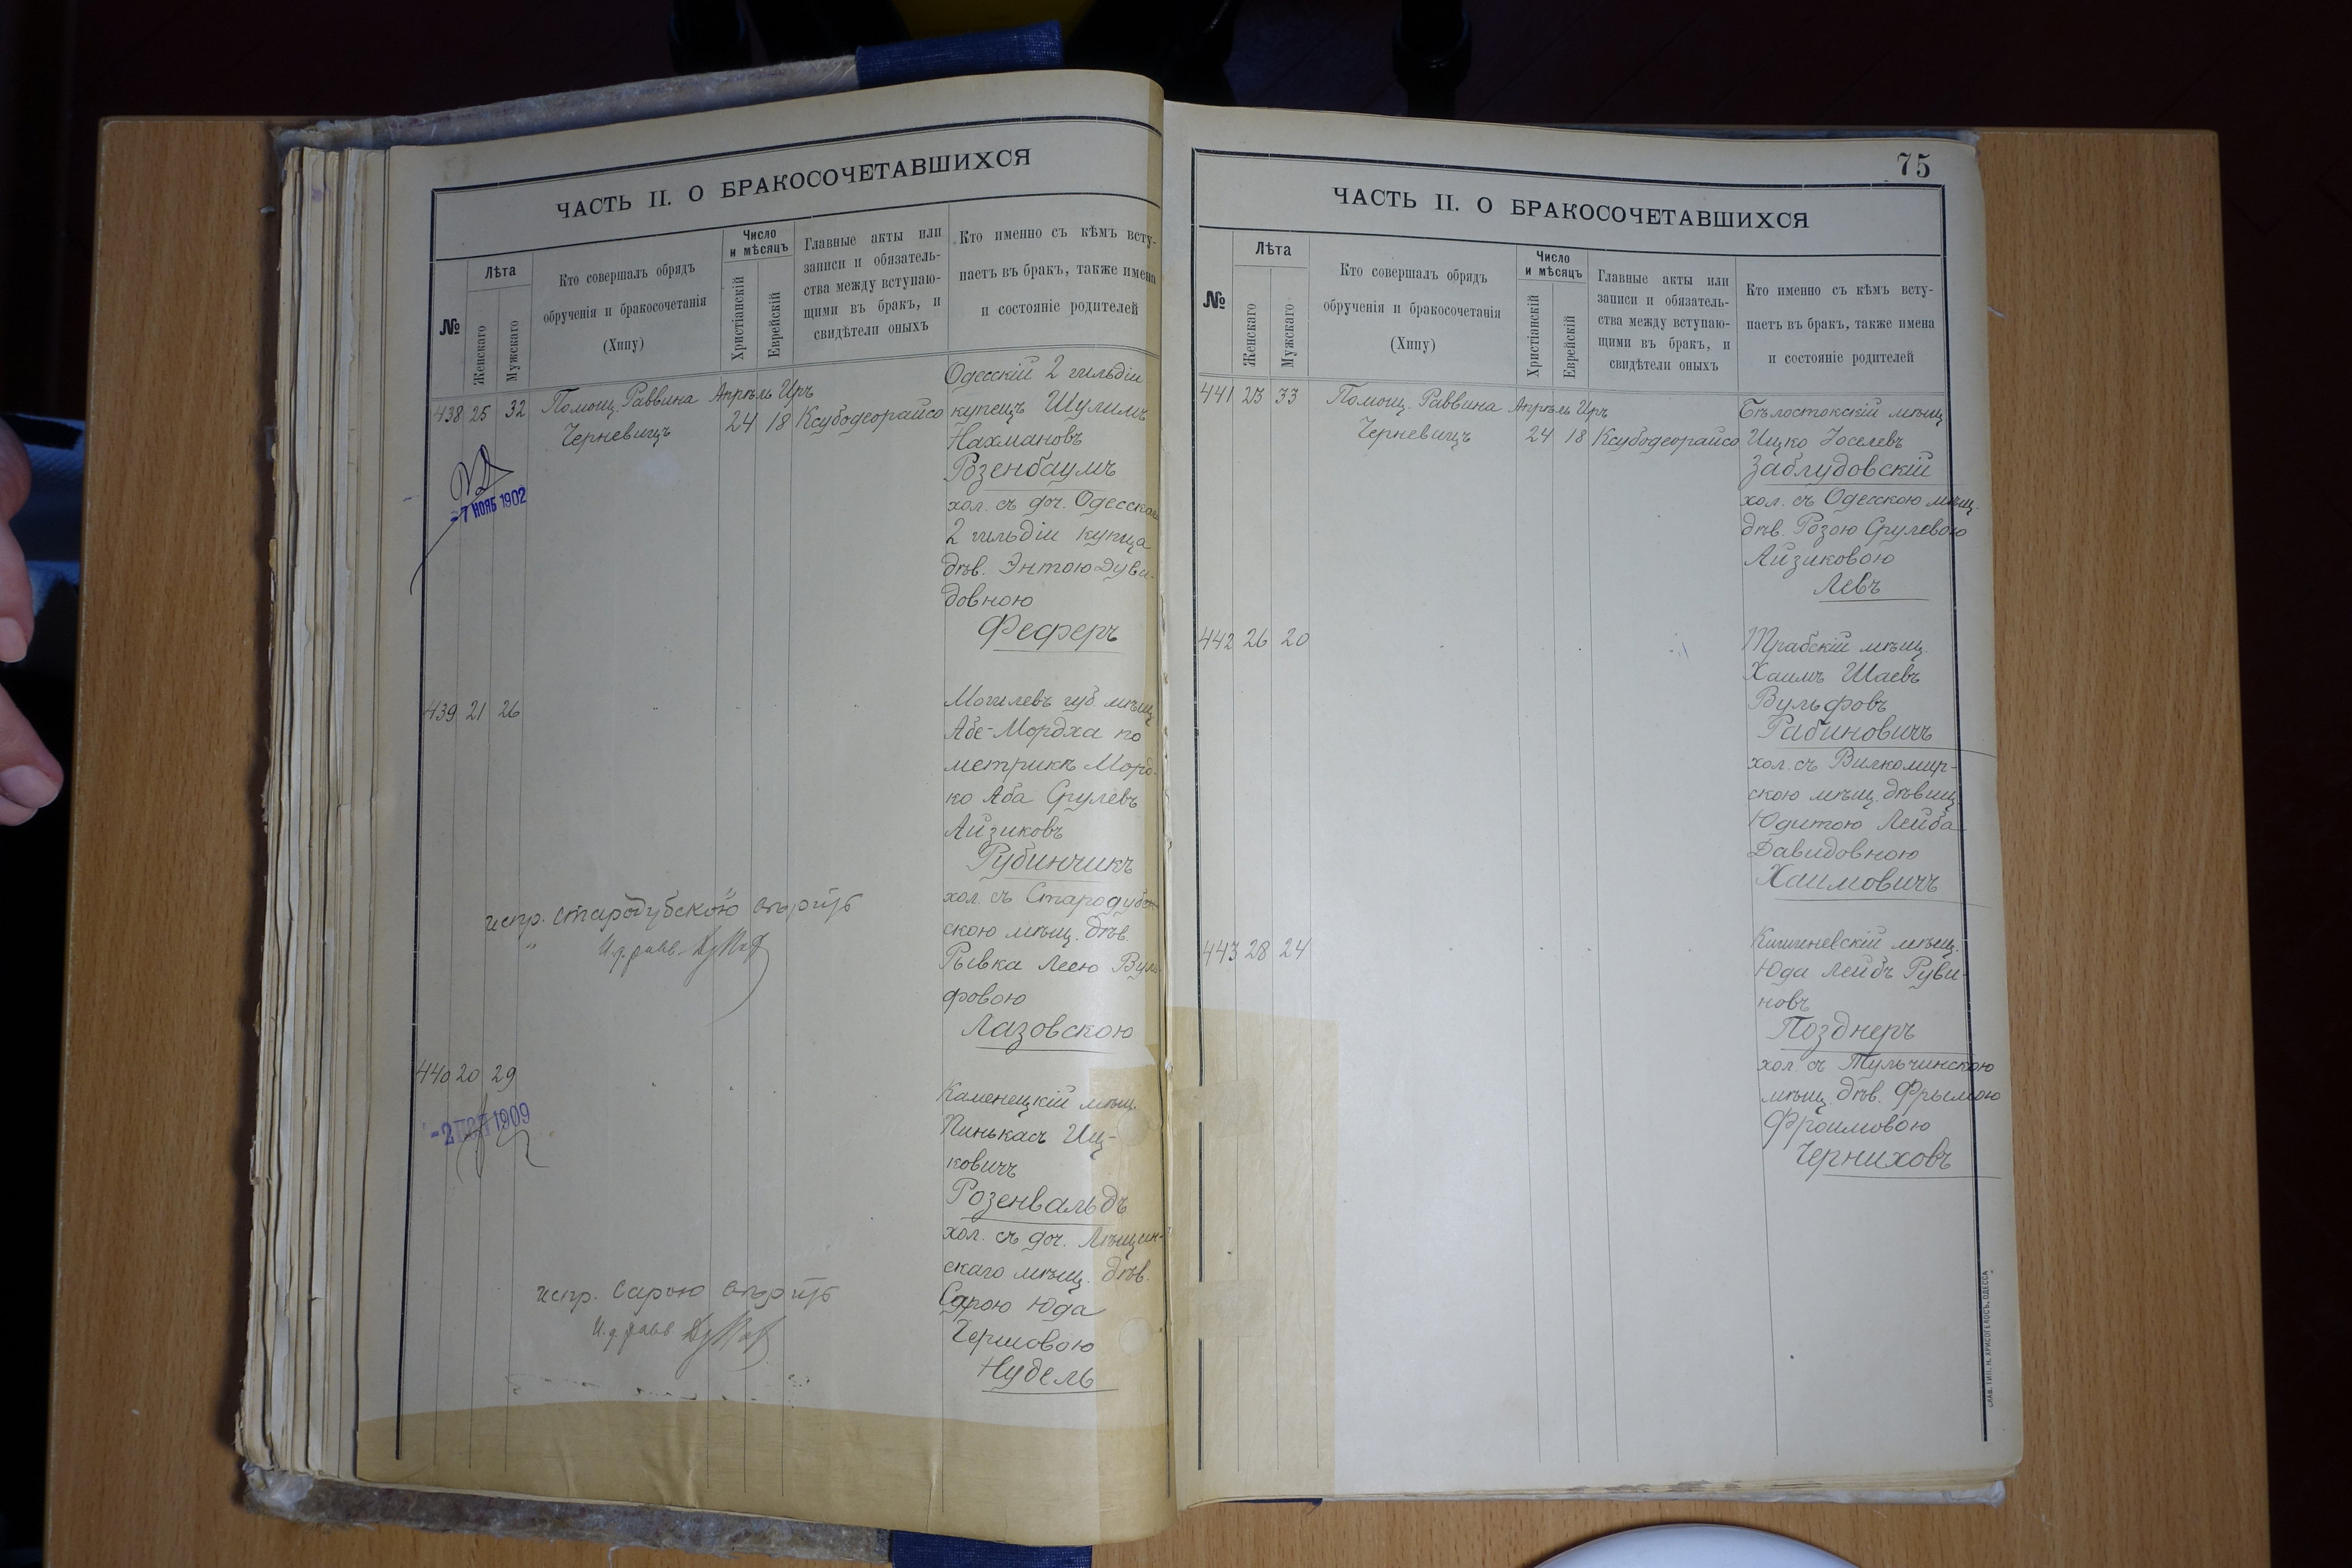 ЧАСТЬ II. О БРАКОСОЧЕТАВШИХСЯ
№
Лѣта
Женскаго
Мужскаго
Кто совершалъ обрядъ
обрученія и бракосочетанія
(Хипу)
Число
и мѣсяцъ
Христіанскій
Еврейскій
Главные акты или
записи и обязатель-
ства между вступаю-
щими въ бракъ, и
свидѣтели оныхъ
Кто именно съ кѣмъ всту-
паетъ въ бракъ, также имена
и состояніе родителей
438 25 32 Помощ. Раввина Апрѣль Иръ
Черневицъ 24 18 Ксубодеорайсо
Одесскій 2 гильдіи
купецъ Шулимъ
Нахмановъ
Розенбаумъ
хол. съ доч. Одесскаго
2 гильдіи купца
дѣв. Энтою Дуви-
довною
Феферъ
-7 НОЯБ 1902
439 21 26
Могилевъ губ. мѣщ.
Абе-Мордха по
метрикѣ Морд-
ко Аба Срулевъ
Айзиковъ
Рубинчикъ
хол. съ Стародубов-
скою мѣщ. дѣв.
Рывка Леею Вуль-
фовою
Лазовскою
испр. Стародубской вѣрить
И.д. равв.
440 20 29
-2 1909
Каменецкій мѣщ.
Пинькасъ Иц-
ковичъ
Розенвальдъ
хол. съ доч. Мѣщин-
скаго мѣщ. дѣв.
Сарою Юда
Гершовою
Нудель
испр. Сарою вѣрить
И.д. равв.
75
ЧАСТЬ II. О БРАКОСОЧЕТАВШИХСЯ
№
Лѣта
Женскаго
Мужскаго
Кто совершалъ обрядъ
обрученія и бракосочетанія
(Хипу)
Число
и мѣсяцъ
Христіанскій
Еврейскій
Главные акты или
записи и обязатель-
ства между вступаю-
щими въ бракъ, и
свидѣтели оныхъ
Кто именно съ кѣмъ всту-
паетъ въ бракъ, также имена
и состояніе родителей
441 23 33 Помощ. Раввина Апрѣль Иръ
Черневицъ 24 18 Ксубодеорайсо
Бѣлостокскій мѣщ
Ицко Іоселевъ
Заблудовскій
хол. съ Одесскою мѣщ.
дѣв. Розою Срулевою
Айзиковою
Левъ
442 26 20
Трабскій мѣщ.
Хаимъ Шаевъ
Вульфовъ
Рабиновичъ
хол. съ Вилкомир-
скою мѣщ. дѣвиц.
Юдитою Лейба-
Давидовною
Хаимовичъ
443 28 24
Кишиневскій мѣщ.
Юда Лейбъ Руви-
новъ
Позднеръ
хол. съ Тульчинскою
мѣщ. дѣв. Фрымою
Фроимовою
Черниховъ
СЛАВ. ТИП. Н. ХРИСОГЕЛОСЪ, ОДЕССА